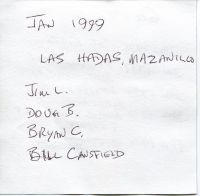 JAN 1999
LAS HADAS, MAZANILLO
JIM L.
DOUG B.
BRYAN C.
BILL CANSFIELD